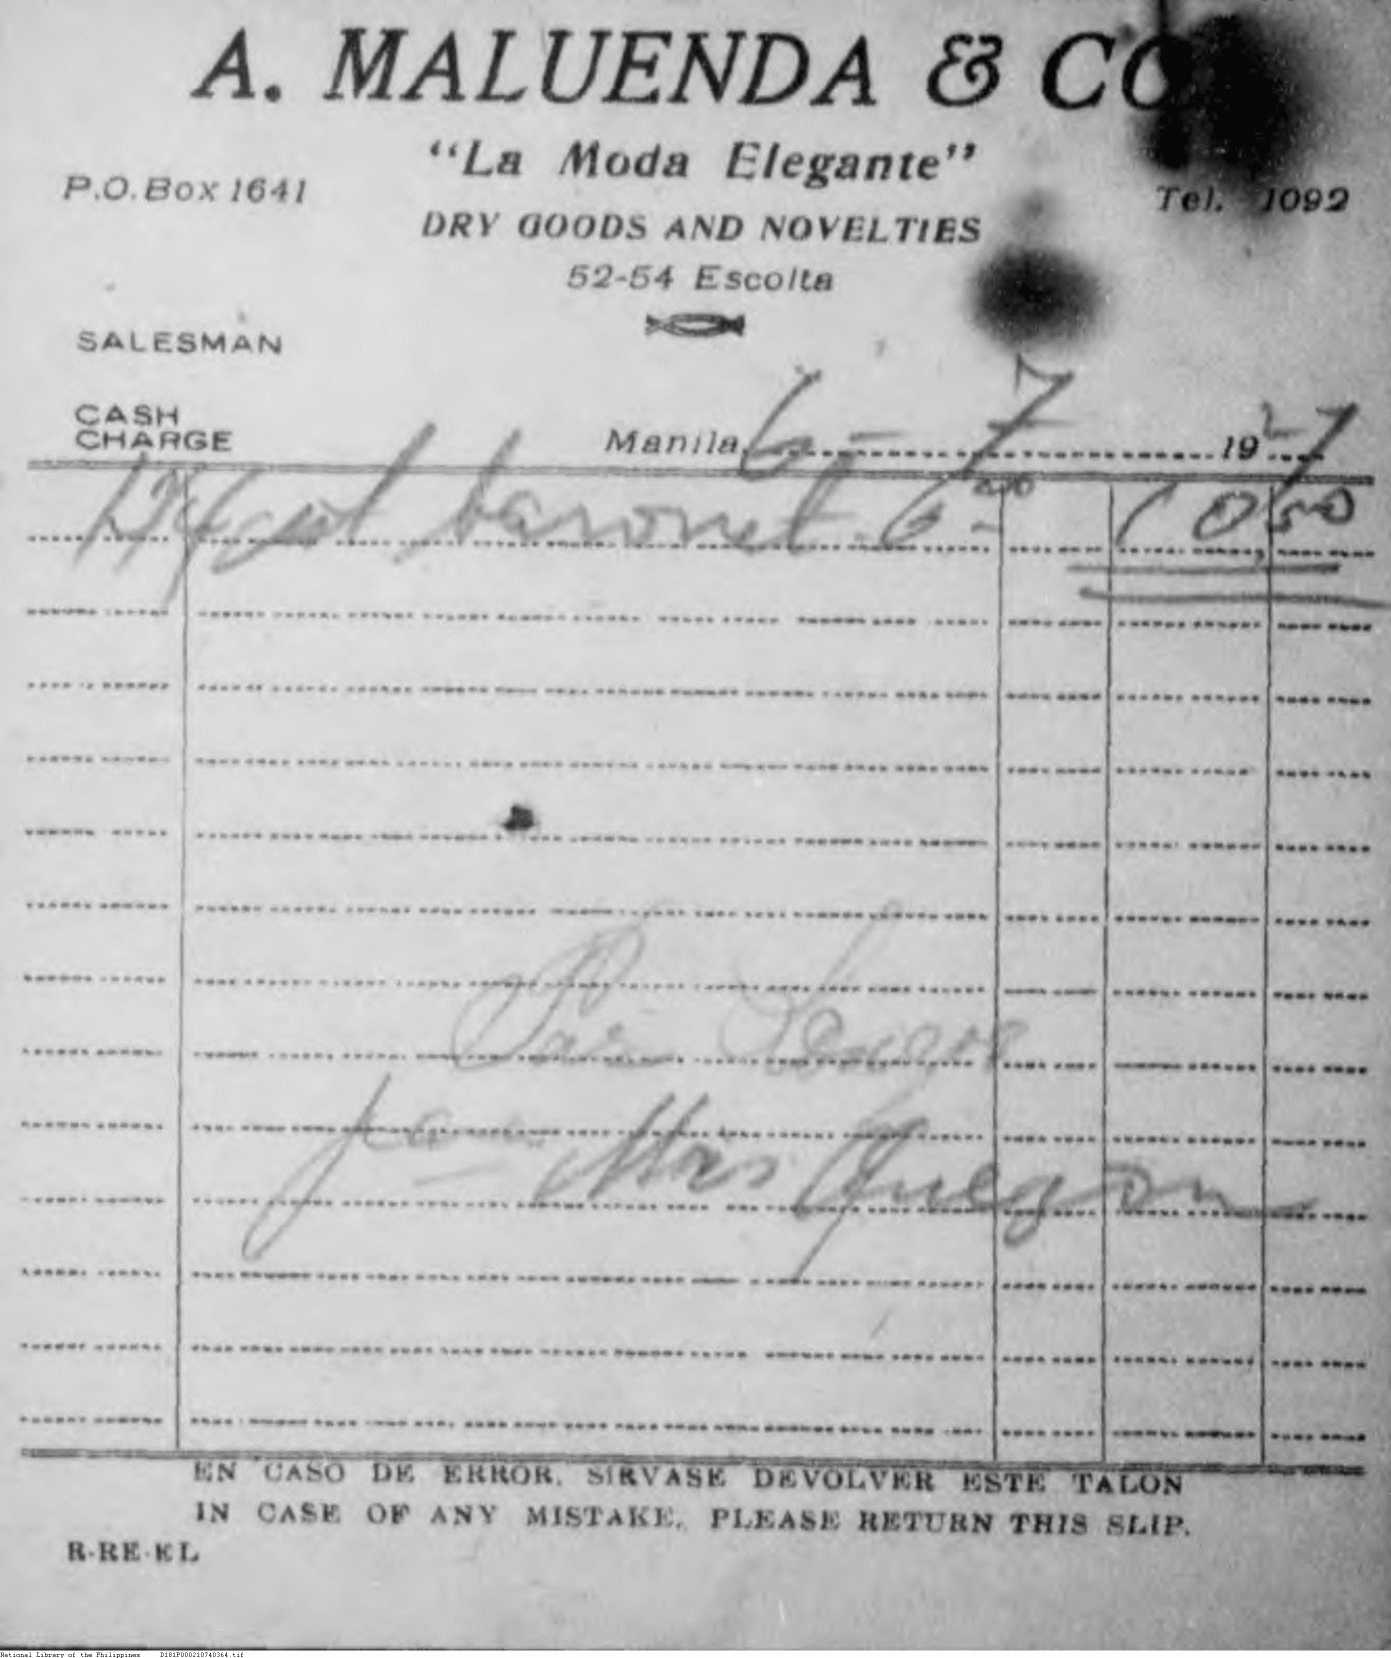 A. MALUENDA & CO
"La Moda Elegante"
P.O. Box 1641
Tel. 1092
DRY GOODS AND NOVELTIES
52-54 Escolta
SALESMAN
CASH
CHARGE
Manila, 6-7 1927
baronet 6 10 50
Mrs
EN CASO DE ERROR, SIRVASE DEVOLVER ESTE TALON
IN CASE OF ANY MISTAKE, PLEASE RETURN THIS SLIP.
R-RE-EL
National Library of the Philippines D181P000210740364.tif